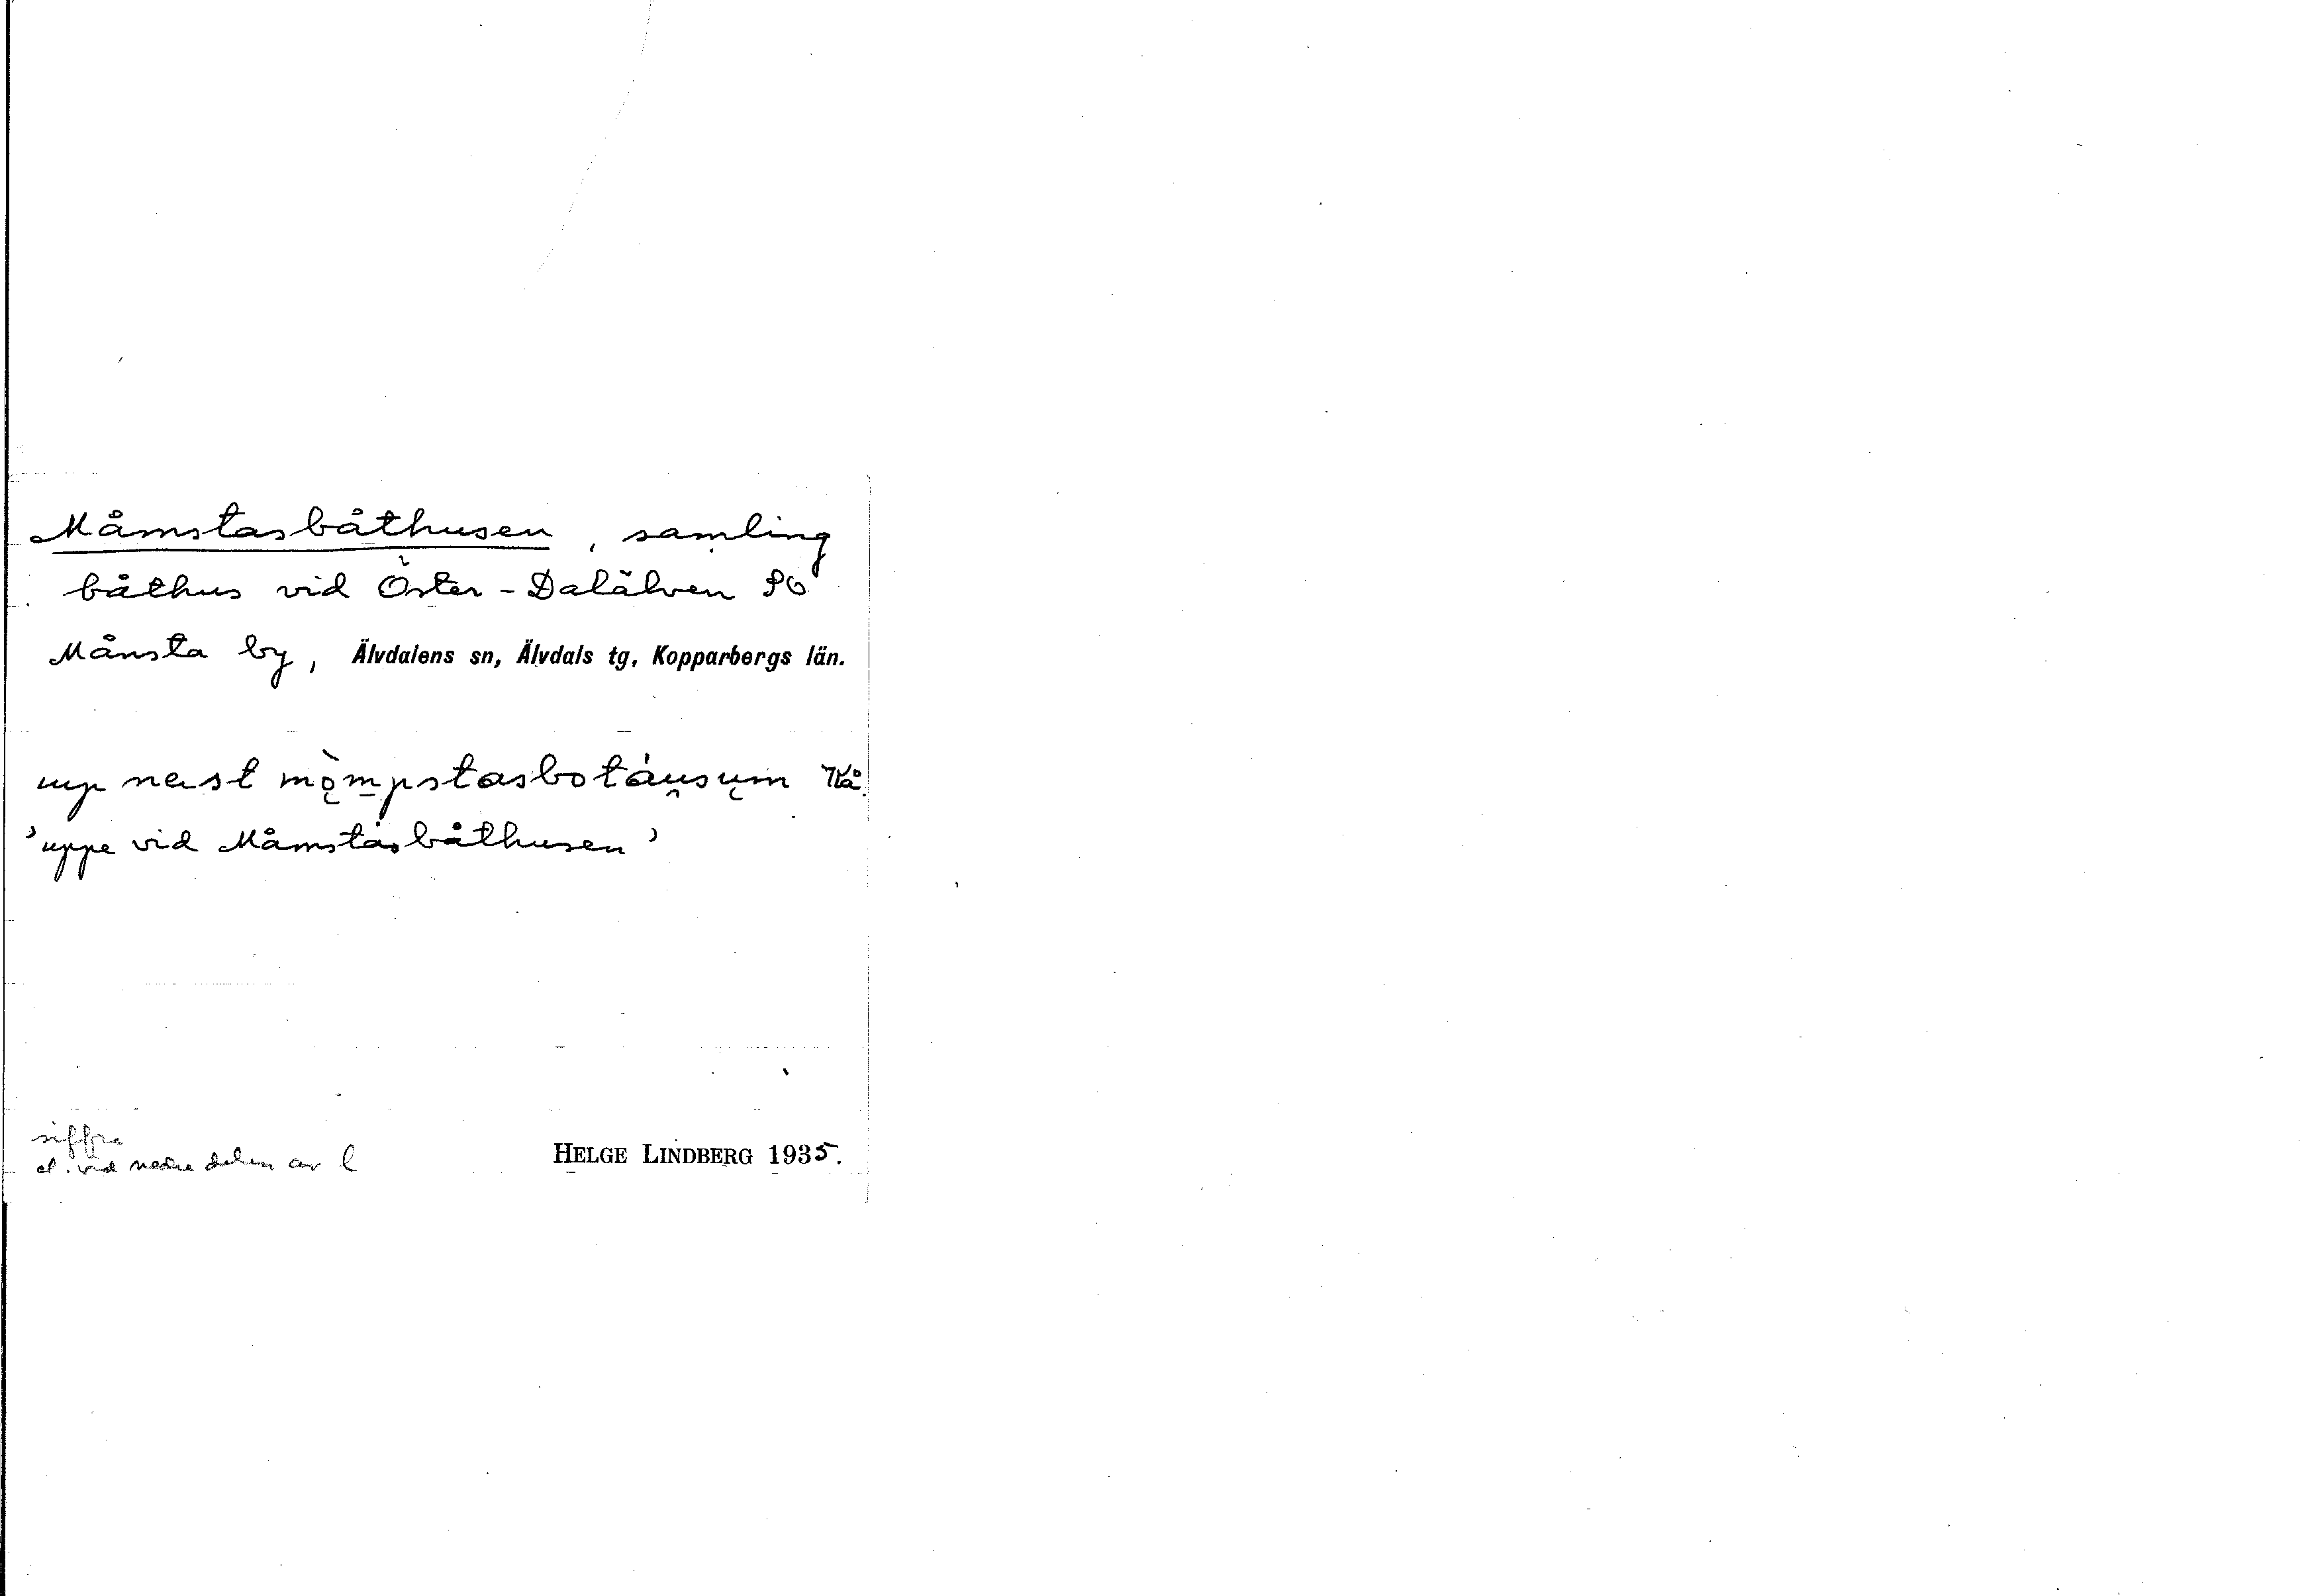 Måmstasbåthusen, samling
båthus vid Öster-Dalälven SO
Månsta by, Älvdalens sn, Älvdals tg, Kopparbergs län.
up nest mò̜mpstasbotáu̯su̜m Kå.
'uppe vid Måmstasbåthusen'
siffra
el. vid nedre delen av l
HELGE LINDBERG 1935.